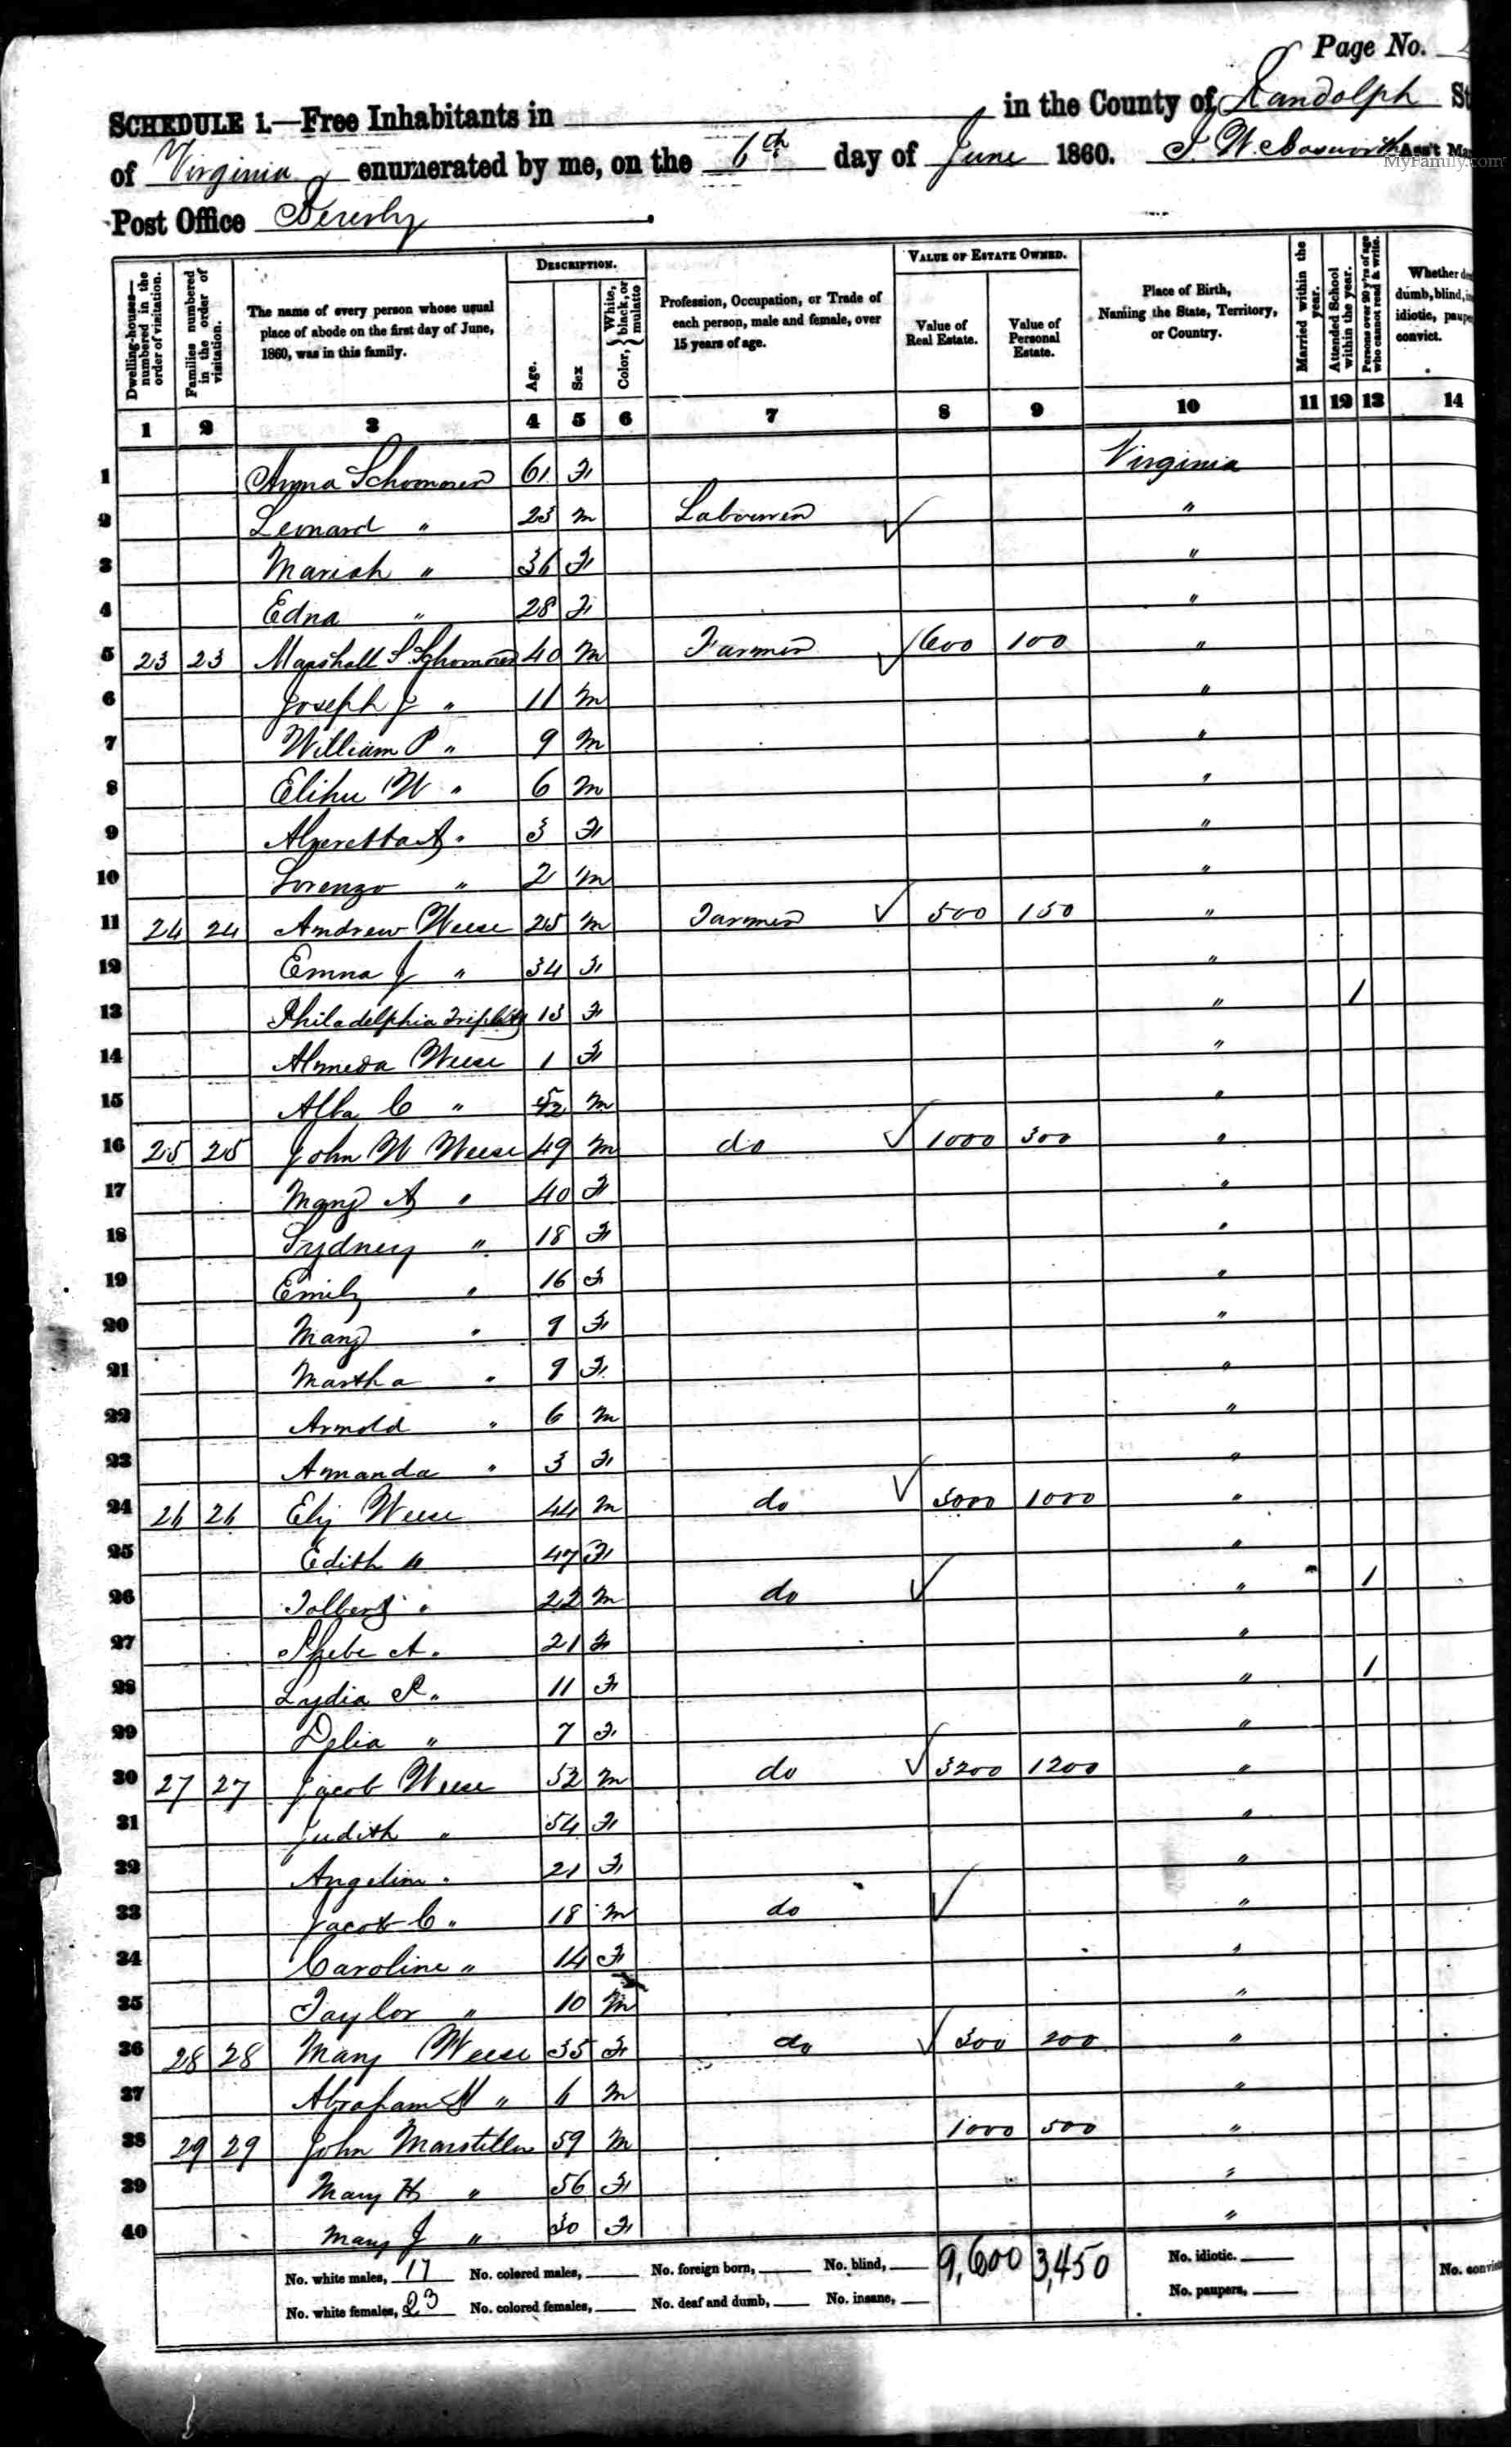 Page No.
SCHEDULE 1.—Free Inhabitants in in the County of Randolph St
of Virginia enumerated by me, on the 6th day of June 1860. J. W. Bosworth Ass't Ma
MyFamily.com
Post Office Beverly.
Dwelling-houses—numbered in the order of visitation.
Families numbered in the order of visitation.
The name of every person whose usual place of abode on the first day of June, 1860, was in this family.
DESCRIPTION.
Age.
Sex
Color, { White, black, or mulatto
Profession, Occupation, or Trade of each person, male and female, over 15 years of age.
VALUE OF ESTATE OWNED.
Value of Real Estate.
Value of Personal Estate.
Place of Birth, Naming the State, Territory, or Country.
Married within the year.
Attended School within the year.
Persons over 20 y'rs of age who cannot read & write.
Whether dea
dumb, blind, in
idiotic, paupe
convict.
1 2 3 4 5 6 7 8 9 10 11 12 13 14
1 Anna Schoonover 61 F Virginia
2 Leonard " 23 m Labourer "
3 Mariah " 36 F "
4 Edna " 28 F "
5 23 23 Marshall S. Schoonover 40 m Farmer 600 100 "
6 Joseph J " 11 m "
7 William P " 9 m "
8 Elihu W " 6 m "
9 3 F "
10 Lorenzo " 2 m "
11 24 24 Andrew Weese 25 m Farmer 500 150 "
12 Emna J " 34 F "
13 Philadelphia Triplett 13 F " 1
14 Almeda Weese 1 F "
15 Alba C " 5/12 m "
16 25 25 John W Weese 49 m do 1000 300 "
17 Mary A " 40 F "
18 Sydney " 18 F "
19 Emily " 16 F "
20 Mary " 9 F "
21 Martha " 9 F "
22 Arnold " 6 m "
23 Amanda " 3 F "
24 26 26 Elij Weese 44 m do 3000 1000 "
25 Edith " 47 F "
26 Tolbert " 22 m do " 1
27 Phebe A " 21 F "
28 Lydia R " 11 F " 1
29 Delia " 7 F "
30 27 27 Jacob Weese 52 m do 3200 1200 "
31 Judith " 54 F "
32 Angelina " 21 F "
33 Jacob C " 18 m do "
34 Caroline " 14 F "
35 Taylor " 10 m "
36 28 28 Mary Weese 35 F do 300 200 "
37 Abraham H " 6 m "
38 29 29 John Marstiller 59 m 1000 500 "
39 Mary H " 56 F "
40 Mary J " 30 F "
No. white males, 17 No. colored males, No. foreign born, No. blind, 9,600 3,450 No. idiotic.
No. white females, 23 No. colored females, No. deaf and dumb, No. insane, No. paupers, No. convic